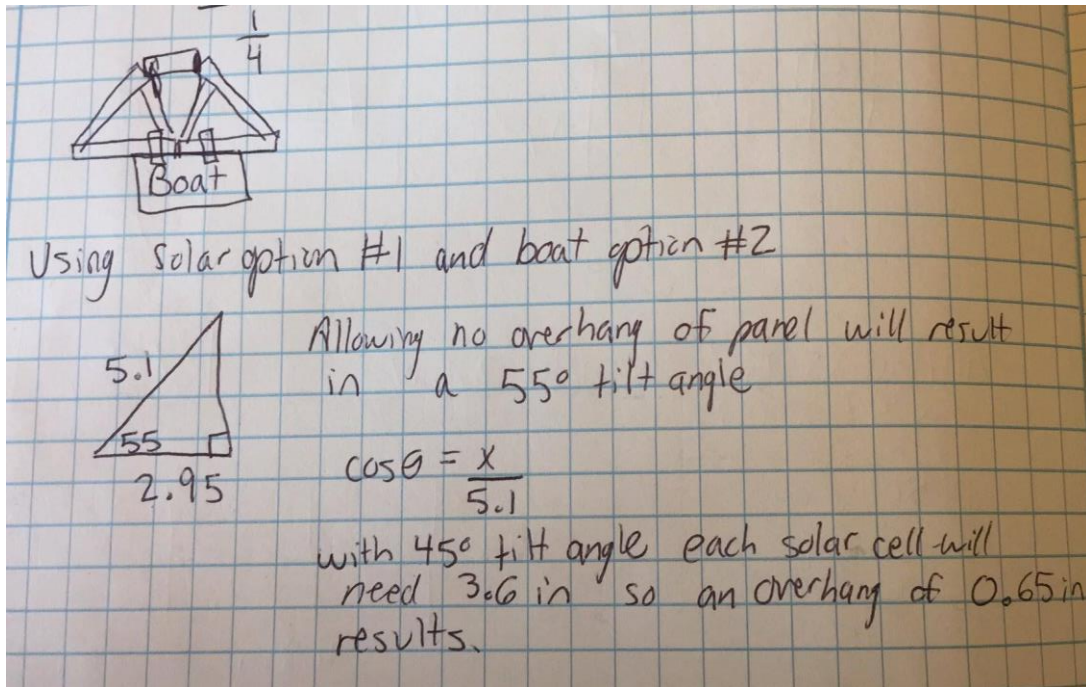 1
4
Boat
Using Solar option #1 and boat option #2
Allowing no overhang of panel will result
in a 55° tilt angle
5.1
55
2.95
cosθ = x
5.1
with 45° tilt angle each solar cell will
need 3.6 in so an overhang of 0.65in
results.